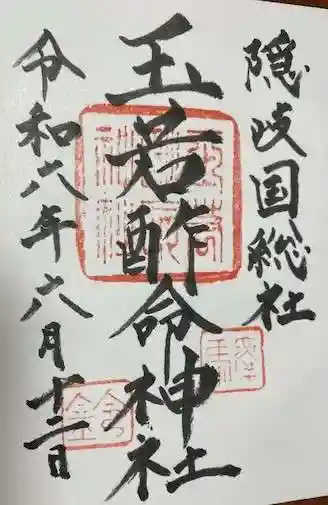 隠岐国総社
玉若酢命神社
令和八年六月十二日